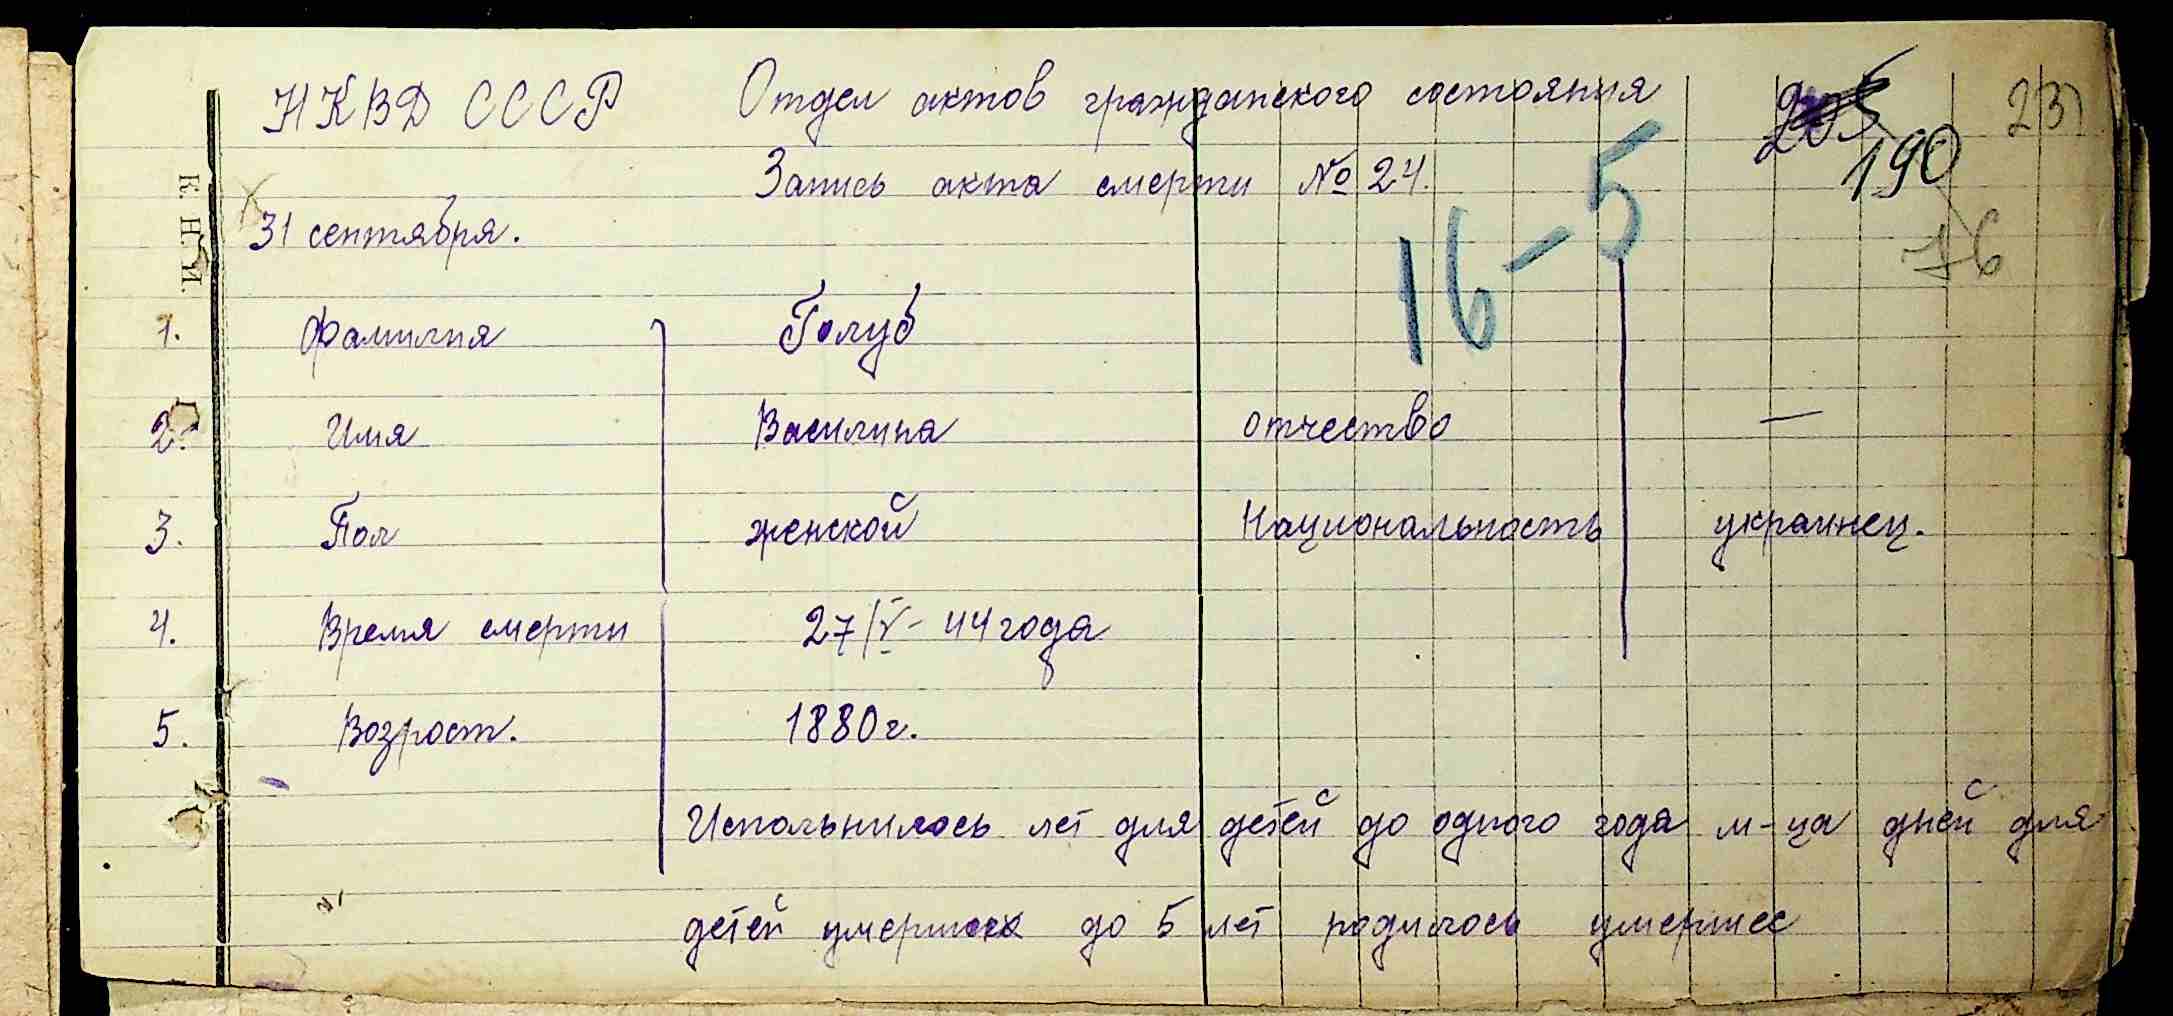 НКВД СССР Отдел актов гражданского состояния 231
190
Запись акта смерти № 24.
76
31 сентября. 16-5
К. Н. И.
1. Фамилия Голуб
2. Имя Василина отчество —
3. Пол женской Национальность украинец.
4. Время смерти 27/V- 44 года
5. Возрост. 1880 г.
Испольнилось лет для детей до одного года м-ца дней для
детей умерших до 5 лет родилось умершее